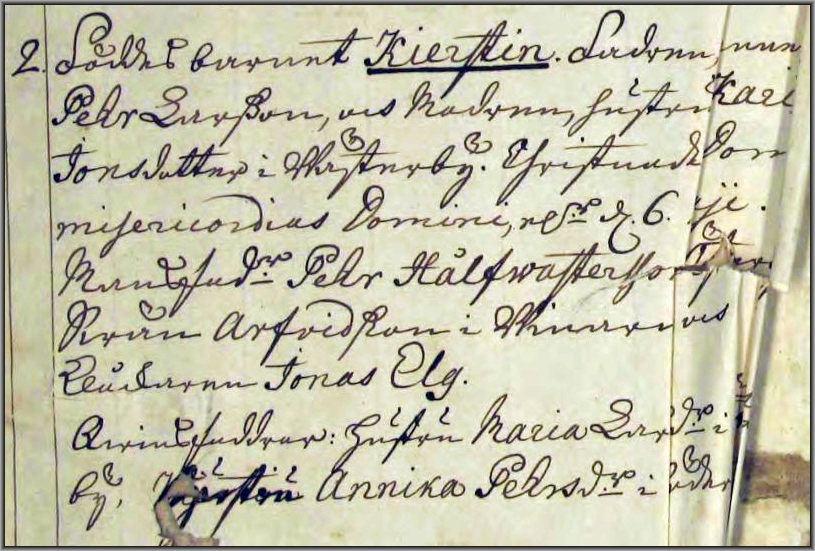 2. Föddes barnet Kierstin. Fadren,
Pehr Larßon, och Modren, hustru Kari
Jonsdotter i Wästerby. Christnades Dom
misericordias Domini, d. 6.
Manfadr Pehr Hälfwastersson
Sven Arfvidßon i och
Klockaren Jonas Elg.
Qwinsfaddrar: hustru Maria Larsdr i
by, Annika Pehrsdr i